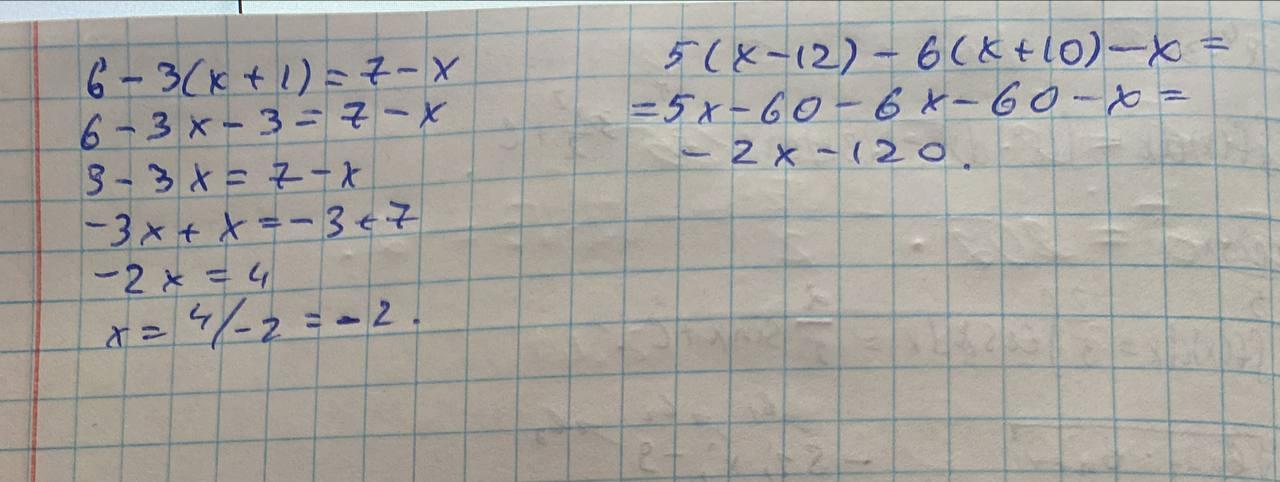 6 - 3(x + 1) = 7 - x
6 - 3x - 3 = 7 - x
3 - 3x = 7 - x
-3x + x = -3 + 7
-2x = 4
x = 4/-2 = -2.
5(x - 12) - 6(x + 10) - x =
= 5x - 60 - 6x - 60 - x =
- 2x - 120.